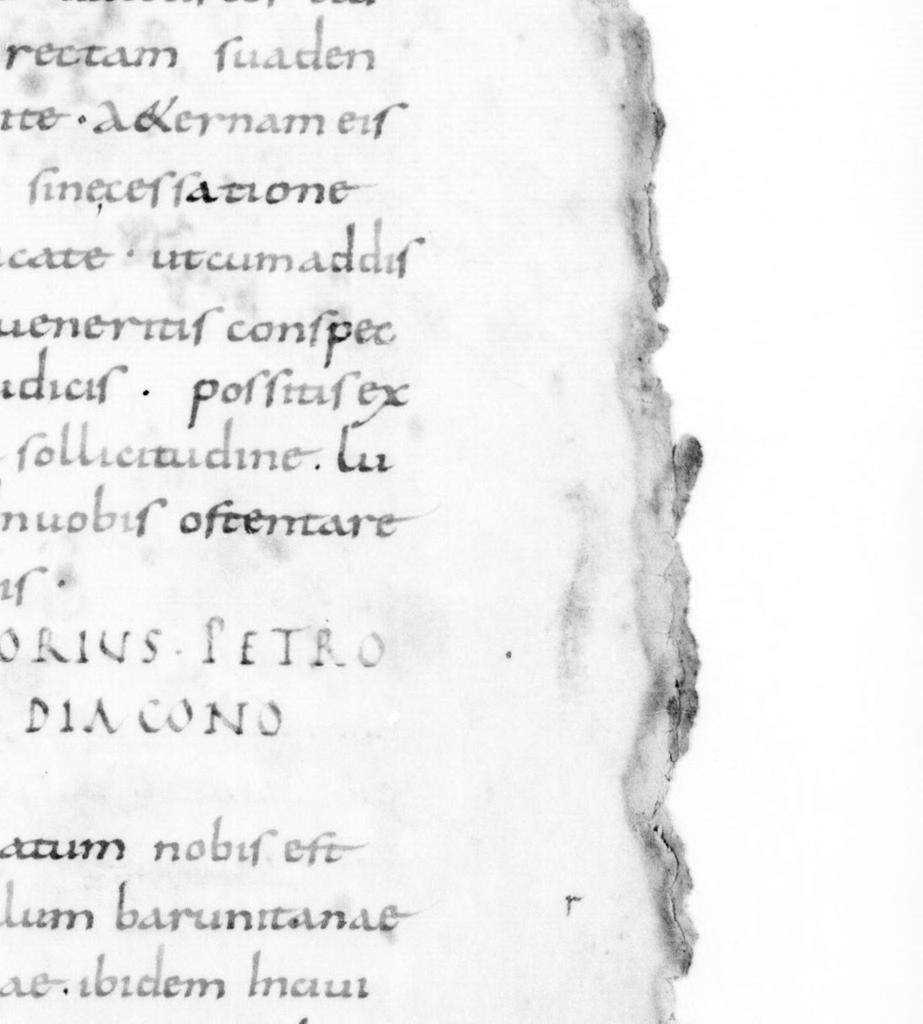 rectam suaden
ite · Aeternam eis
sinecessatione
cate · utcumaddis
ueneritis conspec
udicis · possitis ex
sollicitudine · Lu
nuobis ostentare
is ·
ORIUS · PETRO
DIACONO
atum nobis est
lum barunitanae
ae · ibidem Inciui
r